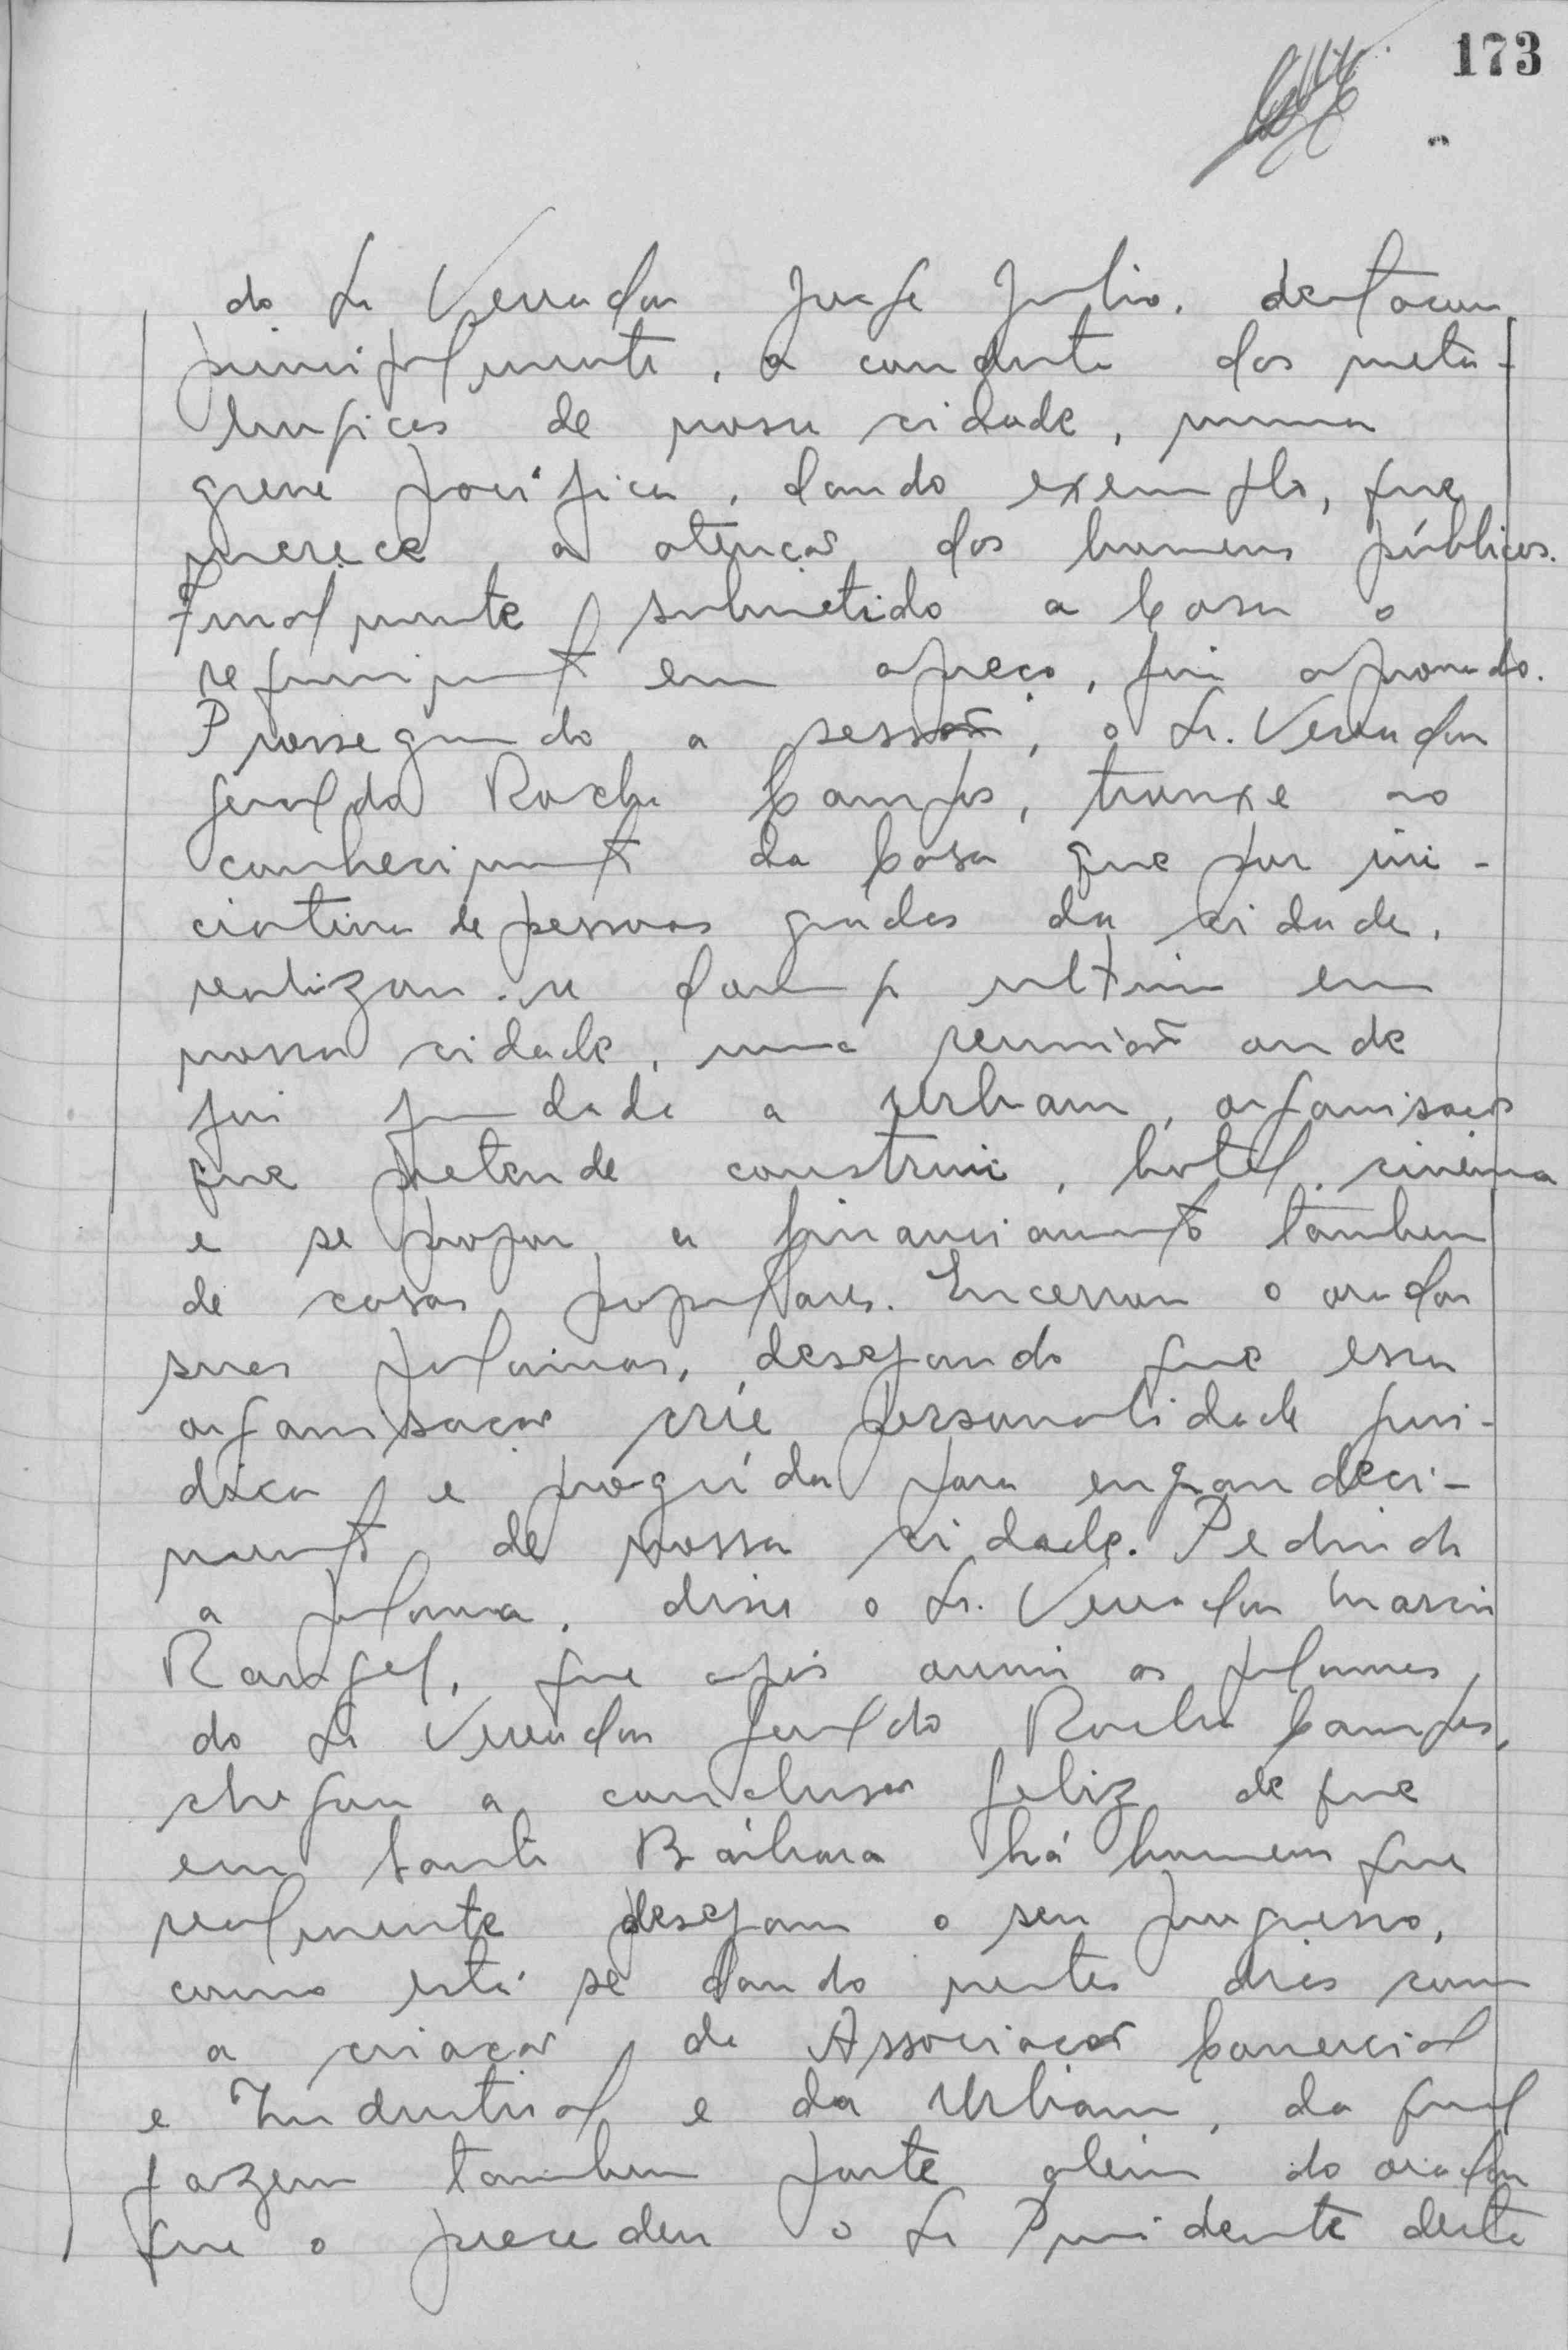 173
do Sr Vereador José Julio, destacou
principalmente, a conduta dos meta-
lurgicos de nossa cidade, numa
greve pacífica, dando exemplo, que
merece a atenção dos homens públicos.
Finalmente, submetido a Casa o
requerimento em apreço, foi aprovado.
Prosseguindo a sessão, o Sr. Vereador
Geraldo Rocha Campos, trouxe ao
conhecimento da Casa que por ini-
ciativa de pessoas gradas da cidade,
realizou-se domingo ultimo em
nossa cidade, uma reunião onde
foi fundada a Urbam, organisação
que pretende construir, hotel, cinema
e se propor a financiamento tambem
de casas populares. Encerrou o orador
suas palavras, desejando que essa
organisação crie personalidade juri-
dica, e progrida para engrandeci-
mento de nossa cidade. Pedindo
a palavra, disse o Sr. Vereador Marcio
Rangel, que após ouvir as palavras,
do Sr Vereador Geraldo Rocha Campos,
chegou a conclusão feliz de que
em Santa Bárbara há homens que
realmente desejam o seu progresso,
como está se dando nestes dias com
a criação, da Associação Comercial
e Industrial e da Urbam, da qual
fazem tambem parte além do orador
que o precedeu o Sr Presidente desta